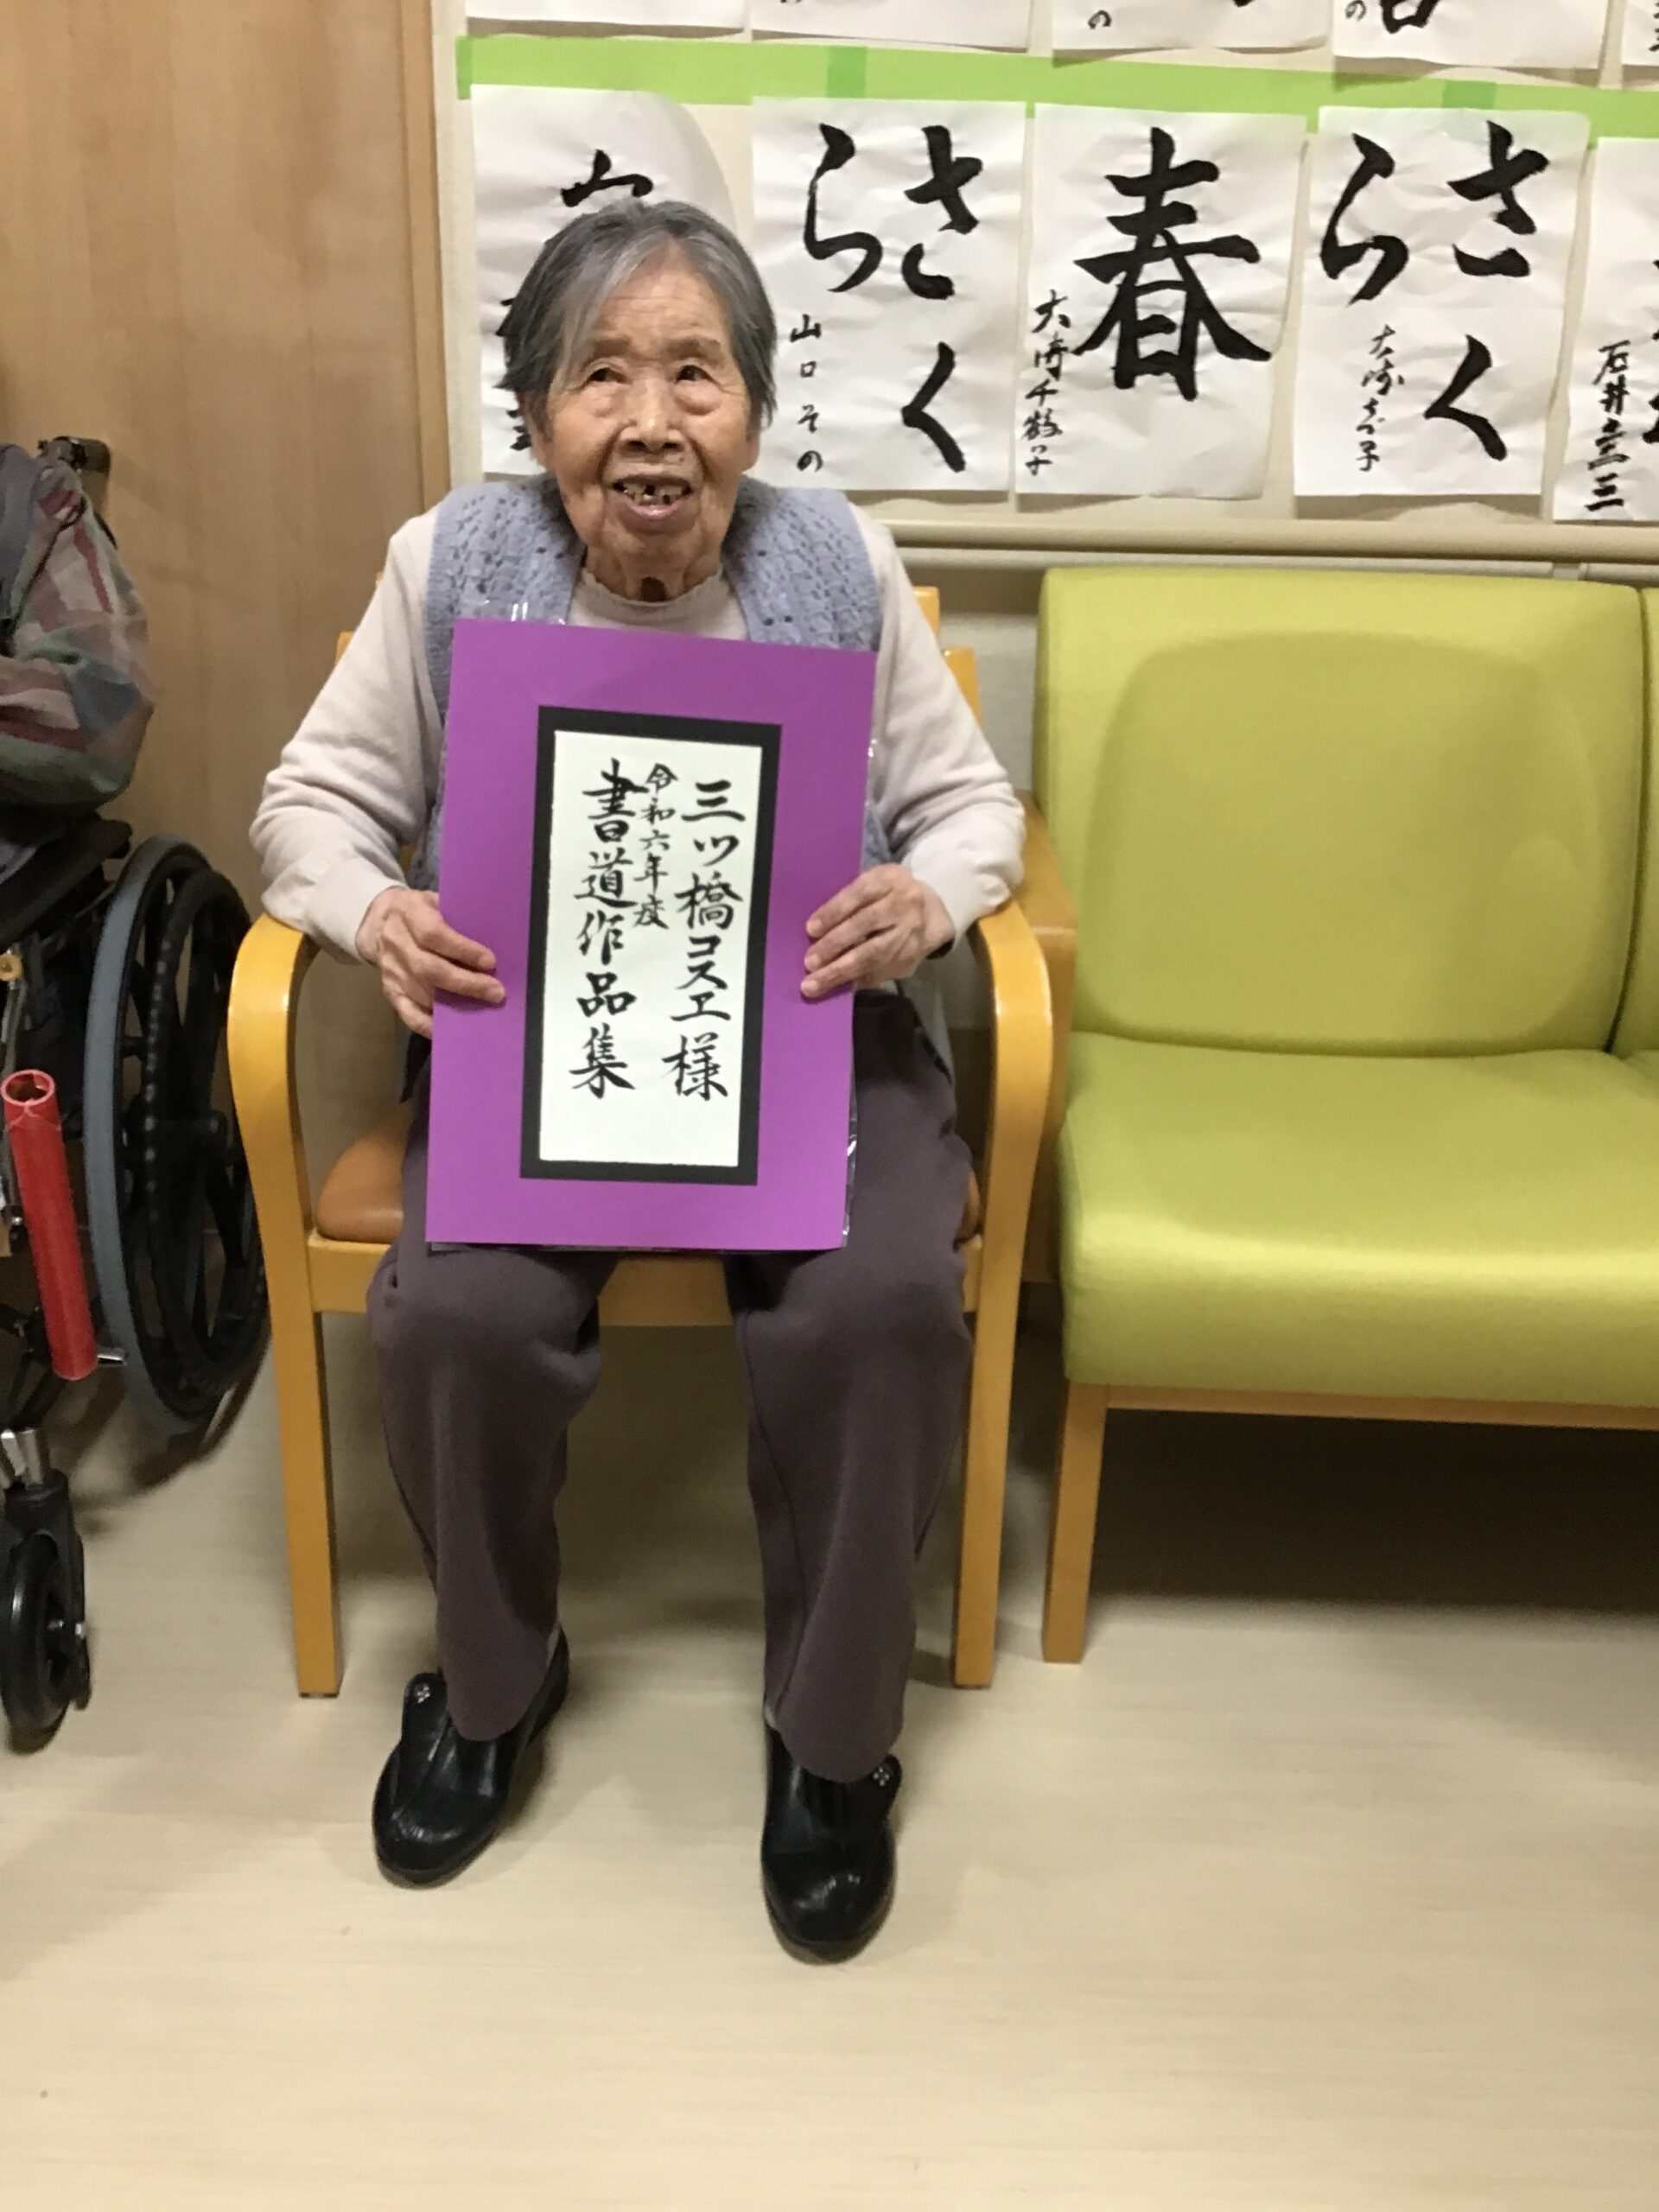 三ツ橋コスヱ様
令和六年度
書道作品集
さくら
石井圭三
さくら
大崎千鶴子
春
さくら
山口その
の
の